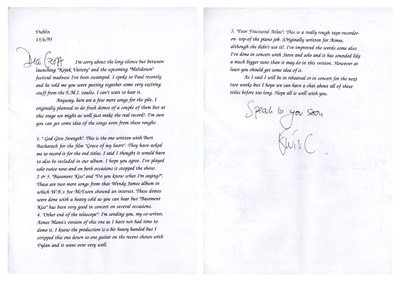 Dublin
13/6/95
Dear Geoff
I'm sorry about the long silence but between
launching "Kojak Variety" and the upcoming "Meltdown"
festival madness I've been swamped. I spoke to Paul recently
and he told me you were putting together some very exciting
stuff from the E.M.I. vaults. I can't wait to hear it.
Anyway, here are a few more songs for the pile. I
originally planned to do fresh demos of a couple of them but at
this stage we might as well just make the real record! I'm sure
you can get some idea of the songs even from these roughs.
1. "God Give Strength". This is the one written with Burt
Bacharach for the film "Grace of my heart". They have asked
me to record it for the end titles. I said I thought it would have
to also be included in our album. I hope you agree. I've played
solo twice now and on both occasions it stopped the show.
2 & 3. "Basement Kiss" and "Do you know what I'm saying?".
These are two more songs from that Wendy James album in
which W.B.'s Joe McEwen showed an interest. These demos
were done with a heavy cold as you can hear but "Basement
Kiss" has been very good in concert on several occasions.
4. "Other end of the telescope". I'm sending you, my co-writer,
Aimee Mann's version of this one as I have not had time to
demo it. I know the production is a bit heavy handed but I
stripped this one down to one guitar on the recent shows with
Dylan and it went over very well.
5. "Poor Fractured Atlas". This is a really rough tape recorder-
on-top-of the piano job. (Originally written for Aimee,
although she didn't use it). I've improved the words some also.
I've done in concert with Steve and solo and it has sounded like
a much bigger tune than it may do in this version. However at
least you should get some idea of it.
As I said I will be in rehearsal or in concert for the next
two weeks but I hope we can have a chat about all of these
titles before too long. Hope all is well with you.
Speak to you soon
Elvis C.